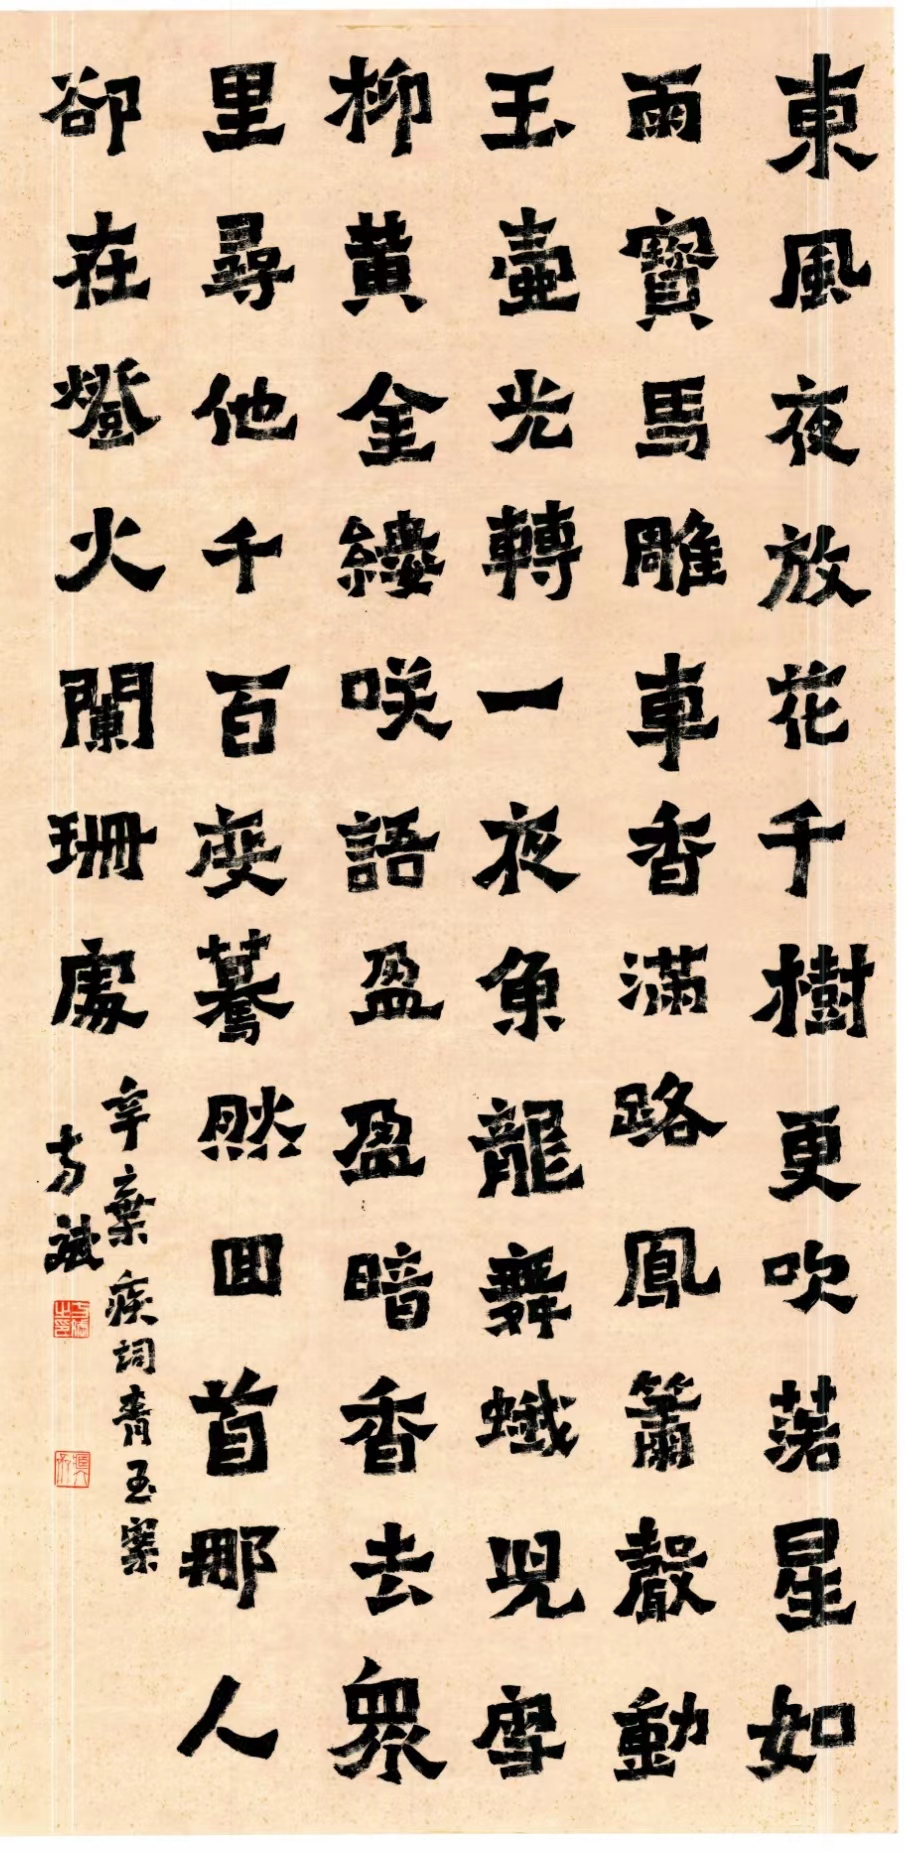 東風夜放花千樹更吹落星如
雨寶馬雕車香滿路鳳簫聲動
玉壺光轉一夜魚龍舞蛾兒雪
柳黃金縷咲語盈盈暗香去眾
里尋他千百度驀然回首那人
卻在燈火闌珊處
辛棄疾詞青玉案
方斌